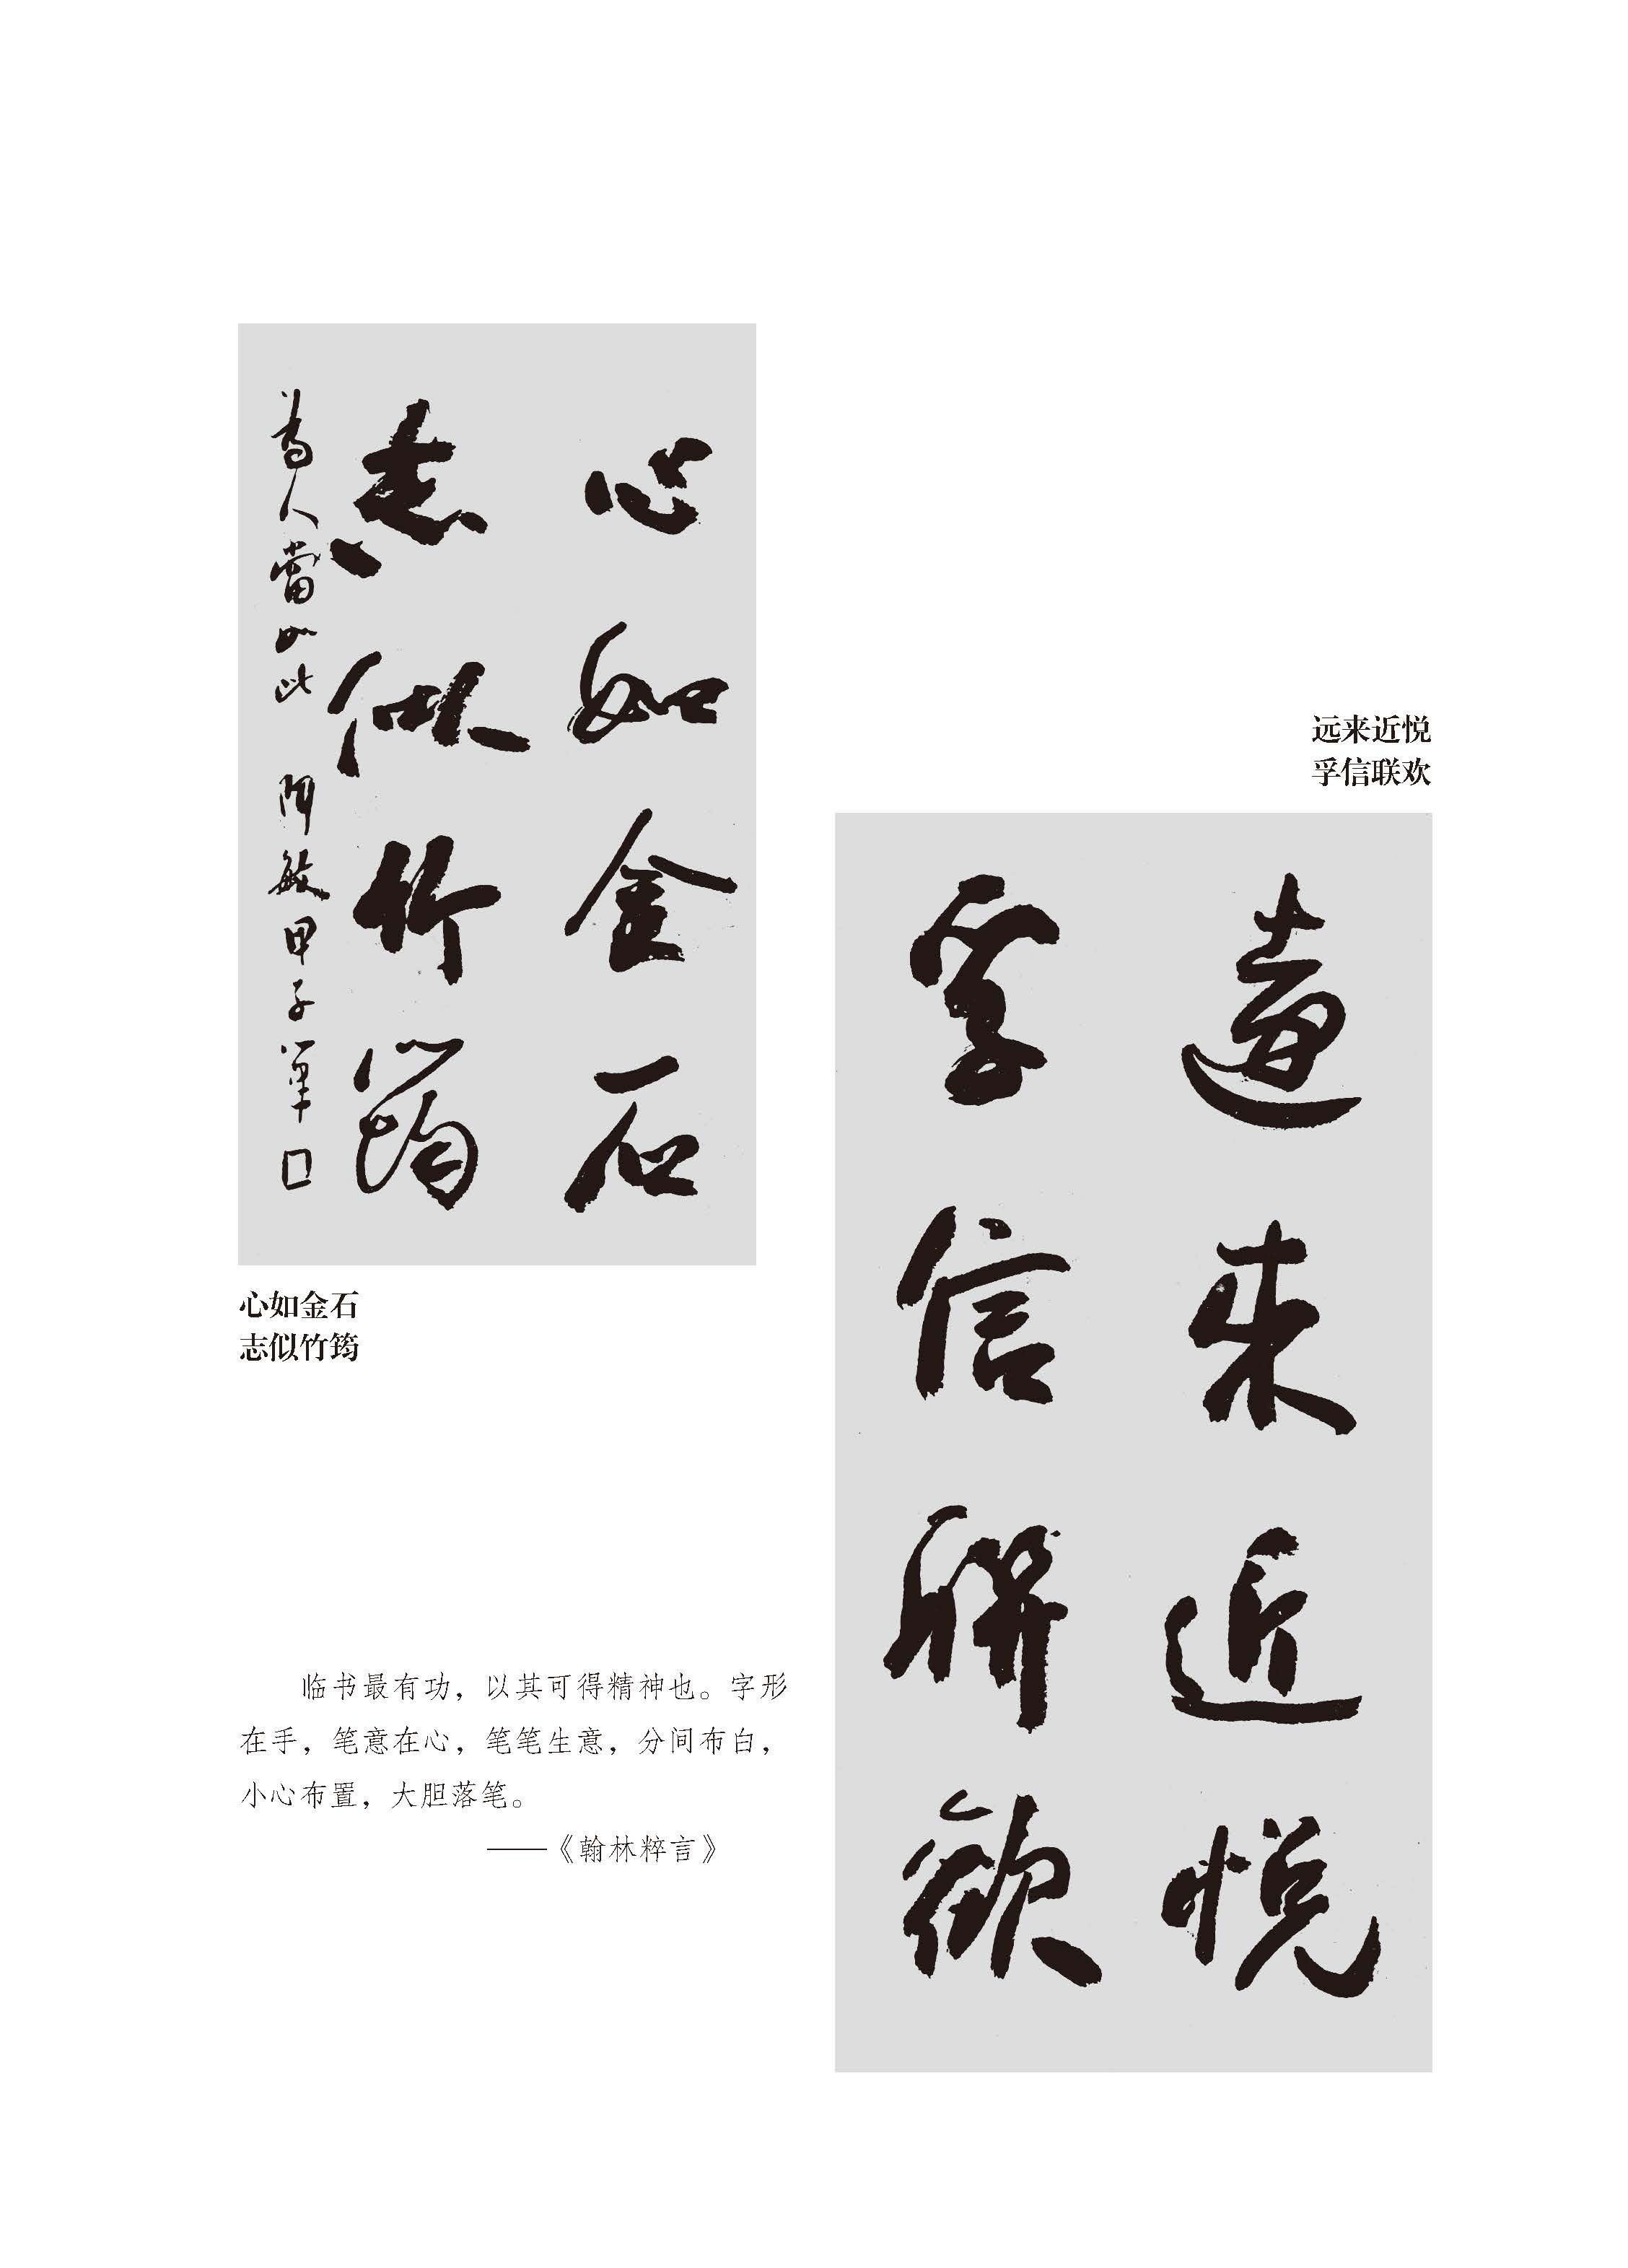 心如金石
志似竹筠
为人當如此
敏甲子筆
心如金石
志似竹筠
远来近悦
孚信联欢
遠来近悦
孚信联歡
临书最有功，以其可得精神也。字形
在手，笔意在心，笔笔生意，分间布白，
小心布置，大胆落笔。
——《翰林粹言》